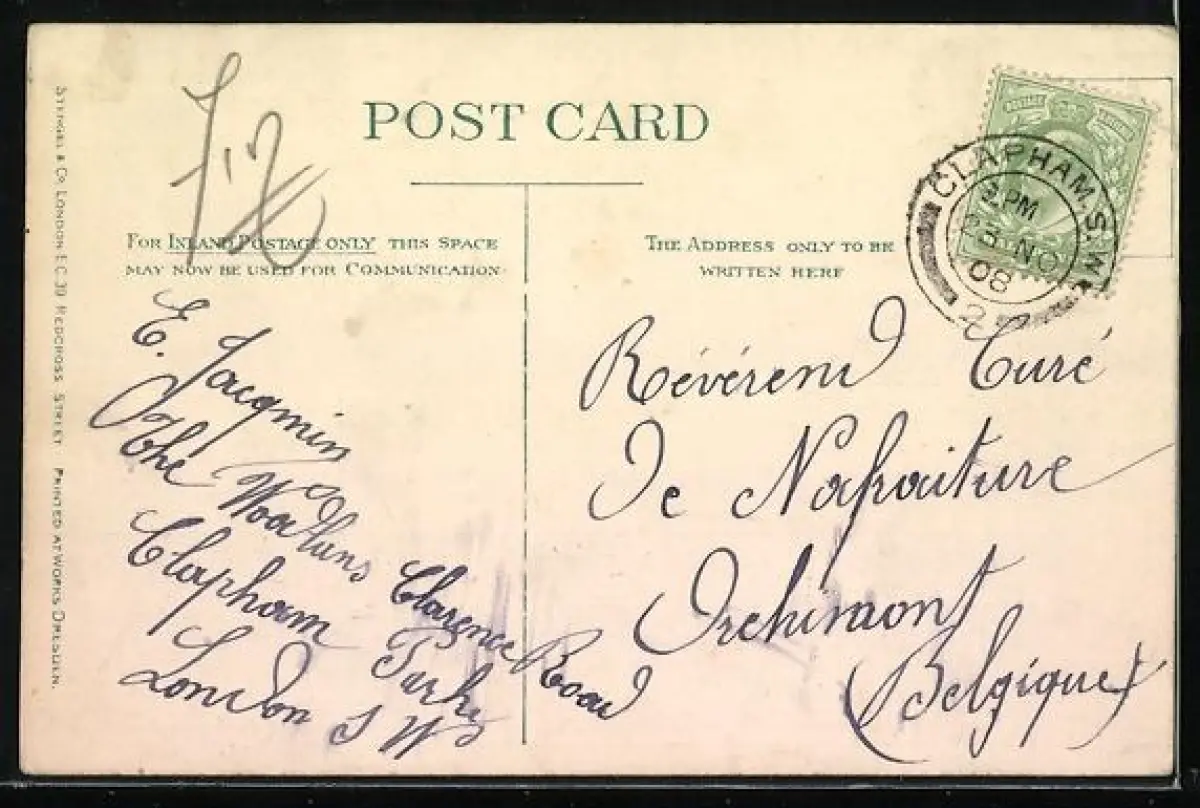 POST CARD
FOR INLAND POSTAGE ONLY THIS SPACE
MAY NOW BE USED FOR COMMUNICATION
THE ADDRESS ONLY TO BE
WRITTEN HERE
CLAPHAM. S.W.
2.PM
23 NO
08
2
STENGEL & Co, LONDON E.C. 39 REDCROSS STREET PRINTED AT WORKS DRESDEN.
E. Jacqmin
The
Clarence Road
Clapham Park
London S W
Révérend Curé
De Nafraiture
Orchimont
(Belgique)